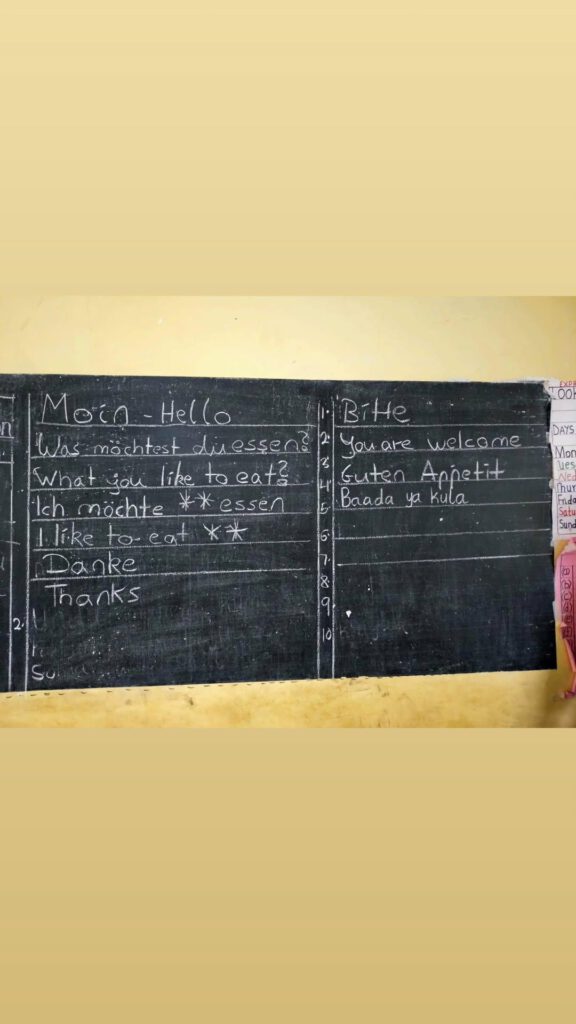 Moin - Hello
Was möchtest du essen?
What you like to eat?
Ich möchte ** essen
I like to eat **
Danke
Thanks
2.
Su
1. Bitte
2. You are welcome
3 Guten Appetit
4 Baada ya kula
5
6
7.
8
9
10
DAYS
Mon
Tues
Wed
Thur
Frida
Satu
Sund